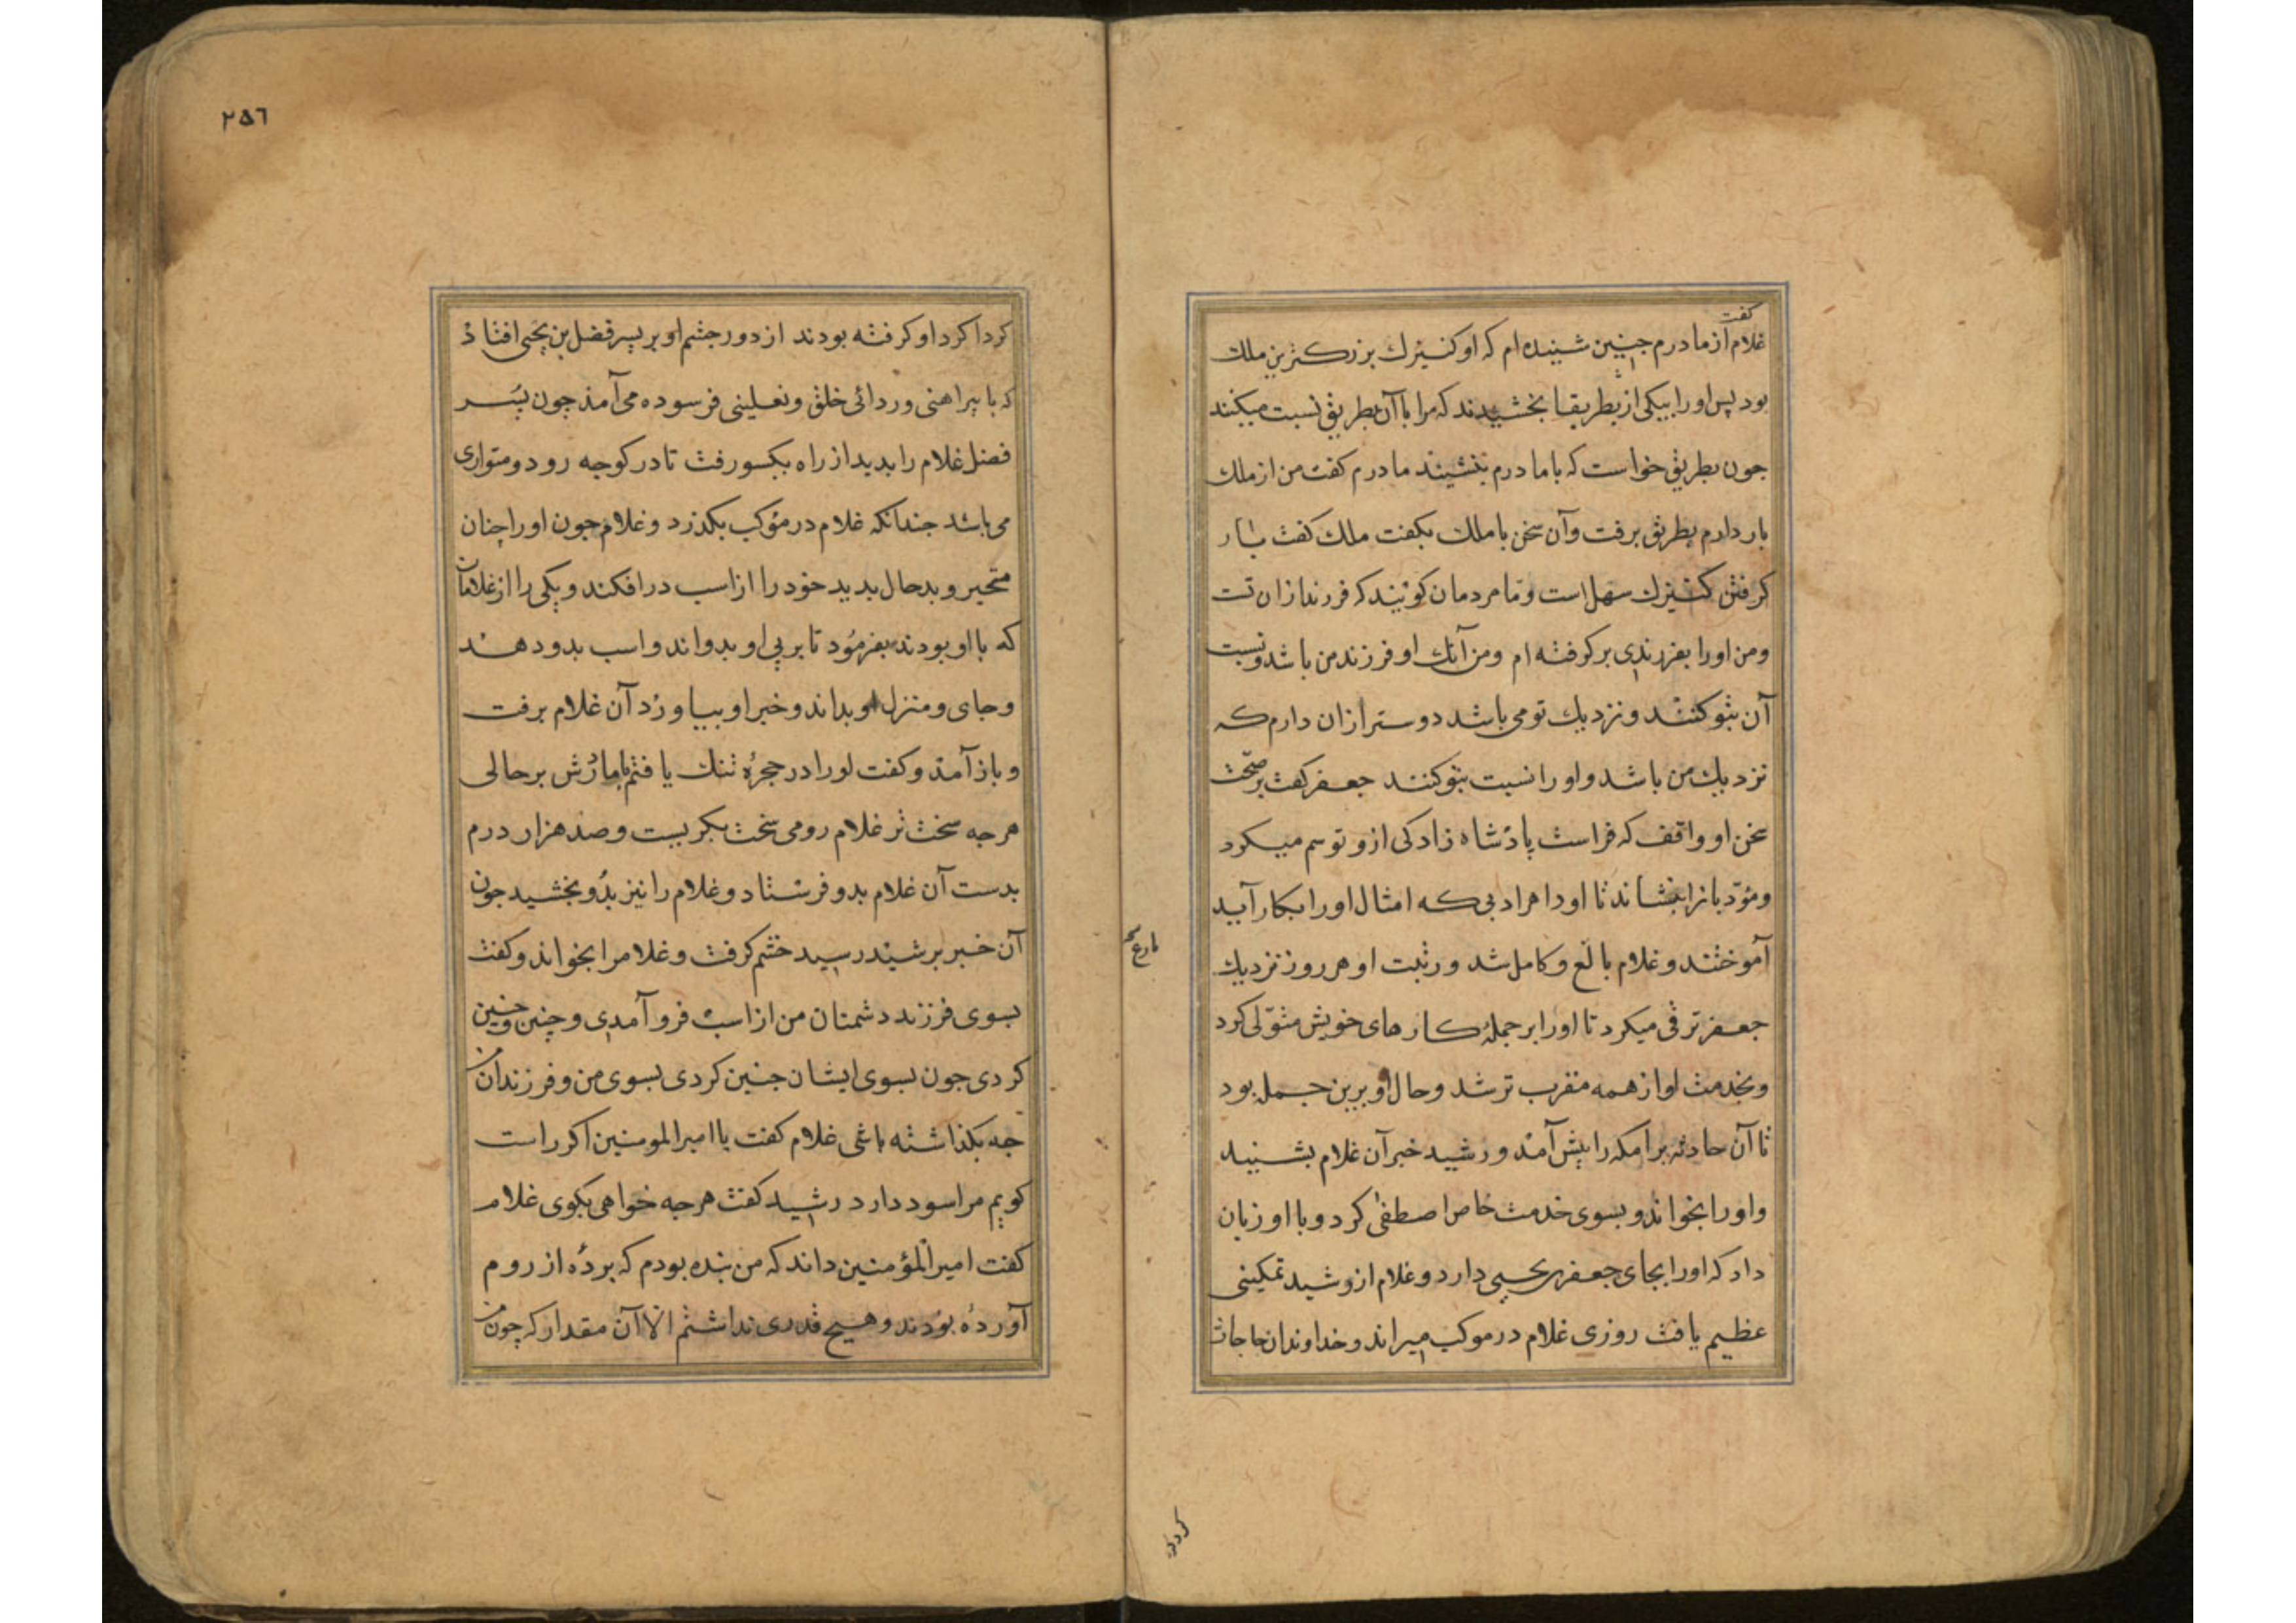 گفت
غلام از مادرم جنین شنیده ام که او کنیزك بزرکترین ملك
بود پس اورا بیکی از بطریقا بخشیدند که مرا با آن بطریق نسبت میکنند
جون بطریق خواست که با مادرم بنشیند مادرم کفت من از ملك
بار دارم بطریق برفت وآن سخن با ملك بکفت ملك کفت بار
کرفتن کنیزك سهل است وتا مردمان کویند که فرزند ازان تست
ومن اورا بفرزندی برکرفته ام ومن آنك او فرزند من باشد ونسبت
آن بتو کنند ونزدیك تو می باشد دوستر ازان دارم که
نزدیك من باشد واورا نسبت بتو کنند جعفر کفت بر صحت
سخن او واقف که فراست پادشاه زادکی ازو توسم میکرد
ومؤدبانرا بنشاند تا اورا هر ادبی که امثال اورا بکار آید
آموختند وغلام بالغ وکامل شد ورتبت او هر روز نزدیك
جعفر ترقی میکرد تا اورا بر جملهٔ کارهای خویش متولی کرد
وبخدمت او از همه مقرب تر شد وحال او برین جمله بود
تا آن حادثه برامکه را پیش آمد ورشید خبر آن غلام بشنید
واورا بخواند وبسوی خدمت خاص اصطفی کرد وبا او زبان
داد که اورا بجای جعفر یحیی دارد وغلام از رشید تمکینی
عظیم یافت روزی غلام در موکب میراند وخداوندان حاجات
٢٥٦
کرداکرد او کرفته بودند از دور جشم او بر پسر فضل بن یحیی افتاذ
که با پیراهنی وردائی خلق ونعلینی فرسوده می آمذ جون پسر
فضل غلام را بدید از راه بکسو رفت تا در کوجه رود ومتواری
می باشد جندانکه غلام در موکب بکذرد وغلام جون اورا چنان
متحیر وبدحال بدید خود را از اسب در افکند ویکی را از غلامان
که با او بودند بفرمود تا بر پی او بدواند واسب بدو دهند
وجای ومنزل او بداند وخبر او بیاورد آن غلام برفت
وباز آمد وکفت اورا در حجرهٔ تنك یافتم با مادرش بر حالی
هرجه سخت تر غلام رومی سخت بکریست وصد هزار درم
بدست آن غلام بدو فرستاد وغلام را نیز بدو بخشید جون
آن خبر برشید رسید خشم کرفت وغلامرا بخواند وکفت
بسوی فرزند دشمنان من از اسب فرو آمدی وچنین وچنین
کردی جون بسوی ایشان جنین کردی بسوی من وفرزندان من
جه بکذاشته باشی غلام کفت یا امیر المومنین اکر راست
کویم مرا سود دارد رشید کفت هرجه خواهی بکوی غلام
کفت امیر المؤمنین داند که من بنده بودم که برده از روم
آورده بودند وهیچ قدری نداشتم الا آن مقدار که چون من